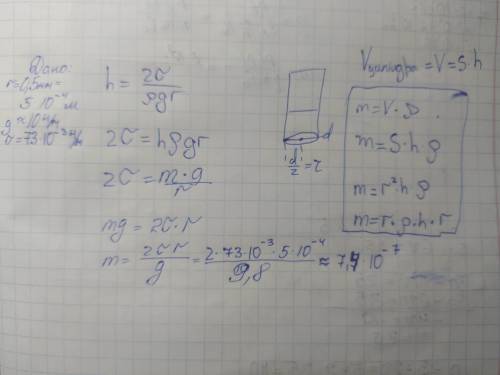 Дано:
r=0,5мм=
5·10⁻⁴ м
g≈10 Н/кг
σ=73·10⁻³ Н/м
h = 2σ/ρgr
2σ = hρgr
2σ = m·g/r
mg = 2σ·r
m = 2σr/g = 2·73·10⁻³·5·10⁻⁴/9,8 ≈ 7,4·10⁻⁷
d
d/2 = r
Vцилиндра = V = S·h
m = V·ρ
m = S·h·ρ
m = r²·h·ρ
m = r·ρ·h·r